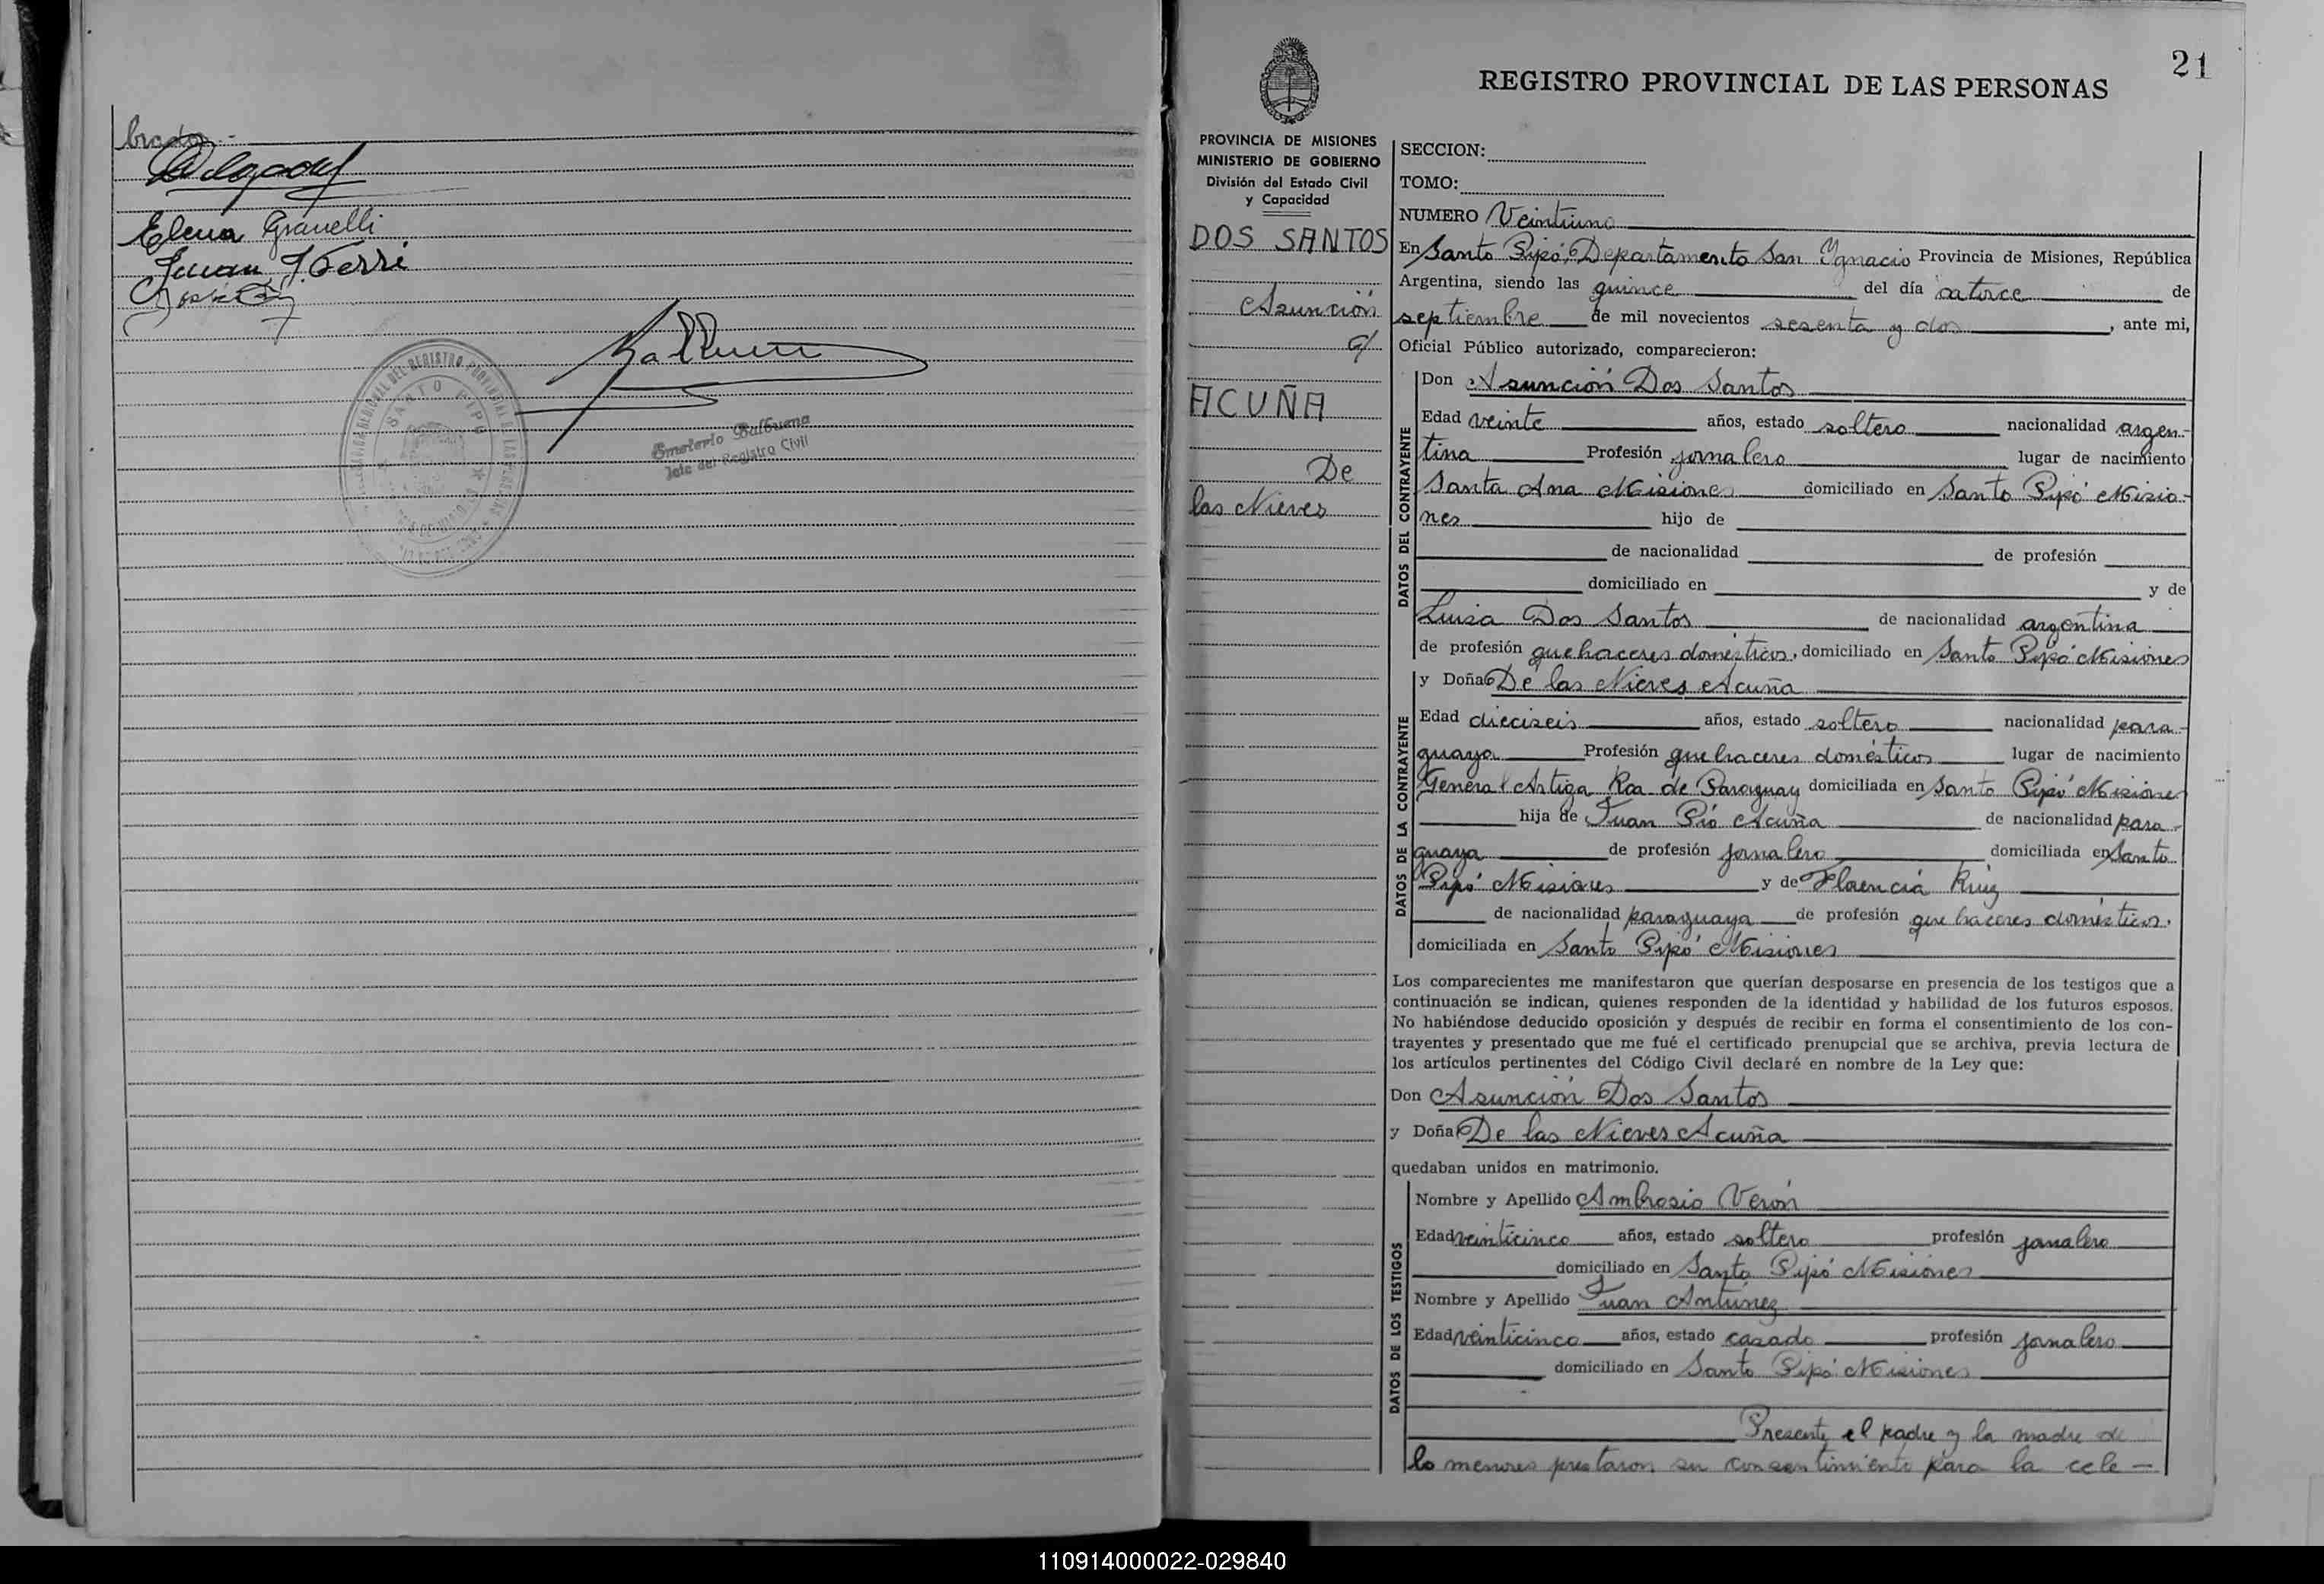 brado.-
Elena Granelli
Juan J Ferré
SANTO PIPO
Emeterio Balbuena
Jefe del Registro Civil
21
REGISTRO PROVINCIAL DE LAS PERSONAS
PROVINCIA DE MISIONES
MINISTERIO DE GOBIERNO
División del Estado Civil
y Capacidad
DOS SANTOS
Asunción
c/
ACUÑA
De
las Nieves
SECCION:
TOMO:
NUMERO Veintiuno
En Santo Pipó, Departamento San Ygnacio Provincia de Misiones, República
Argentina, siendo las quince del día catorce de
septiembre de mil novecientos sesenta y dos, ante mi,
Oficial Público autorizado, comparecieron:
DATOS DEL CONTRAYENTE
Don Asunción Dos Santos
Edad veinte años, estado soltero nacionalidad argen-
tina Profesión jornalero lugar de nacimiento
Santa Ana Misiones domiciliado en Santo Pipó Misio-
nes hijo de
de nacionalidad de profesión
domiciliado en y de
Luisa Dos Santos de nacionalidad argentina
de profesión quehaceres domésticos, domiciliado en Santo Pipó Misiones
DATOS DE LA CONTRAYENTE
y Doña De las Nieves Acuña
Edad dieciseis años, estado soltera nacionalidad para-
guaya Profesión quehaceres domésticos lugar de nacimiento
General Artiga Rca. de Paraguay domiciliada en Santo Pipó Misiones
hija de Juan Pío Acuña de nacionalidad para-
guaya de profesión jornalero domiciliada en Santo
Pipó Misiones y de Florencia Ruiz
de nacionalidad paraguaya de profesión quehaceres domésticos,
domiciliada en Santo Pipó Misiones
Los comparecientes me manifestaron que querían desposarse en presencia de los testigos que a
continuación se indican, quienes responden de la identidad y habilidad de los futuros esposos.
No habiéndose deducido oposición y después de recibir en forma el consentimiento de los con-
trayentes y presentado que me fué el certificado prenupcial que se archiva, previa lectura de
los artículos pertinentes del Código Civil declaré en nombre de la Ley que:
Don Asunción Dos Santos
y Doña De las Nieves Acuña
quedaban unidos en matrimonio.
DATOS DE LOS TESTIGOS
Nombre y Apellido Ambrosio Verón
Edad veinticinco años, estado soltero profesión jornalero
domiciliado en Santo Pipó Misiones
Nombre y Apellido Juan Antunez
Edad veinticinco años, estado casado profesión jornalero
domiciliado en Santo Pipó Misiones
Presente el padre y la madre de
lo menores prestaron su consentimiento para la cele-
110914000022-029840